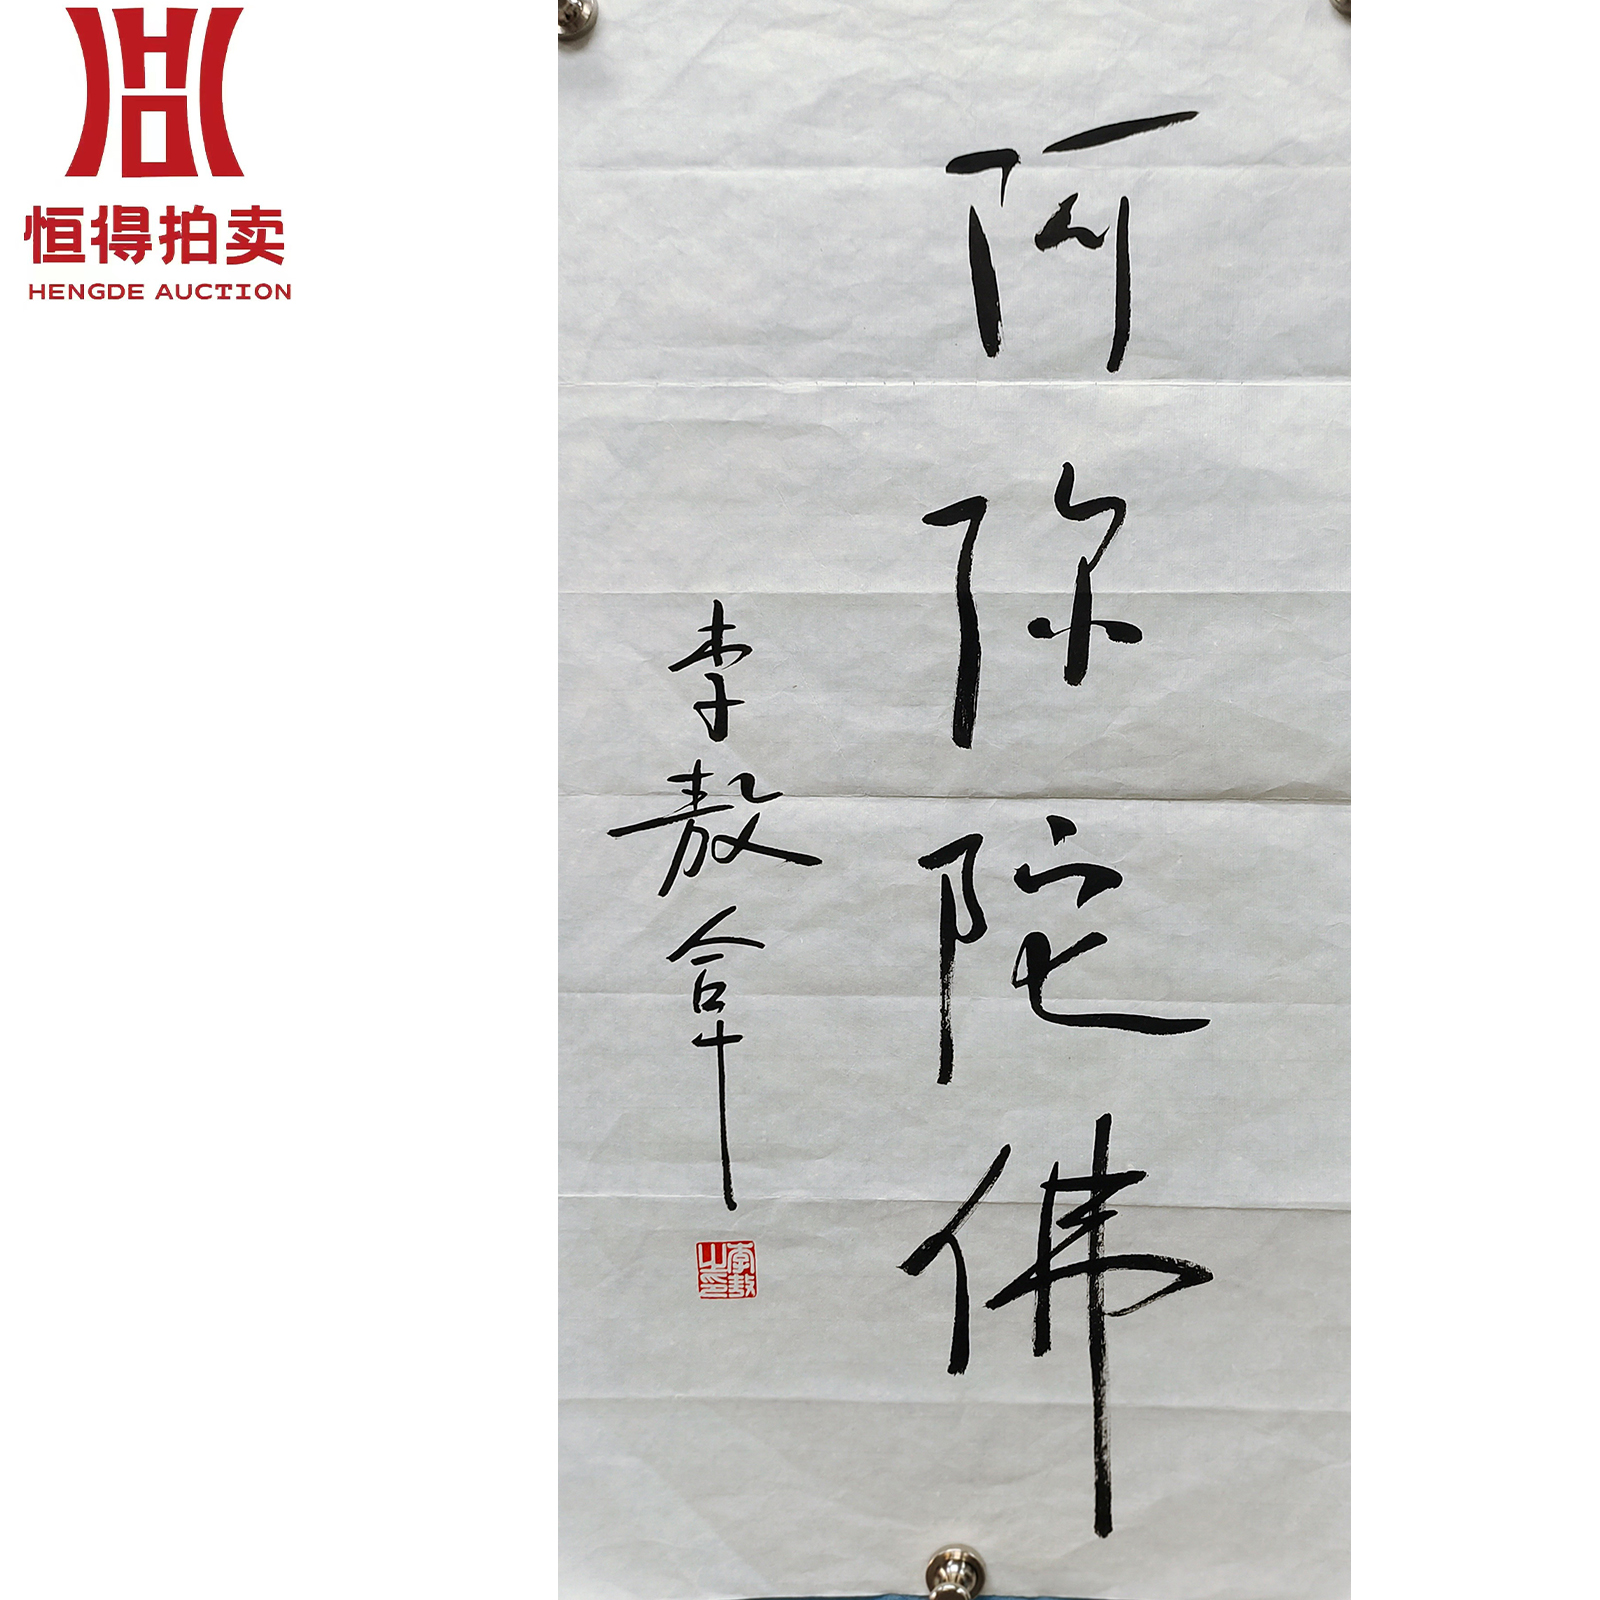 恒得拍卖
HENGDE AUCTION
阿弥陀佛
李敖
李敖之印